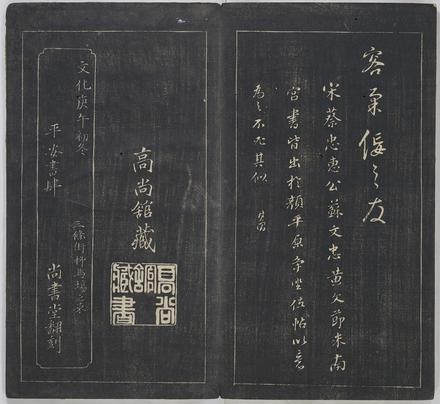 宋蔡忠惠公蘇文忠黃文節米南
宮書皆出於顏平原爭坐位帖以意
為之不求其似
高尚館藏
高尚館藏書
文化庚午初冬
平安書肆
三條街柳馬場東
尚書堂翻刻